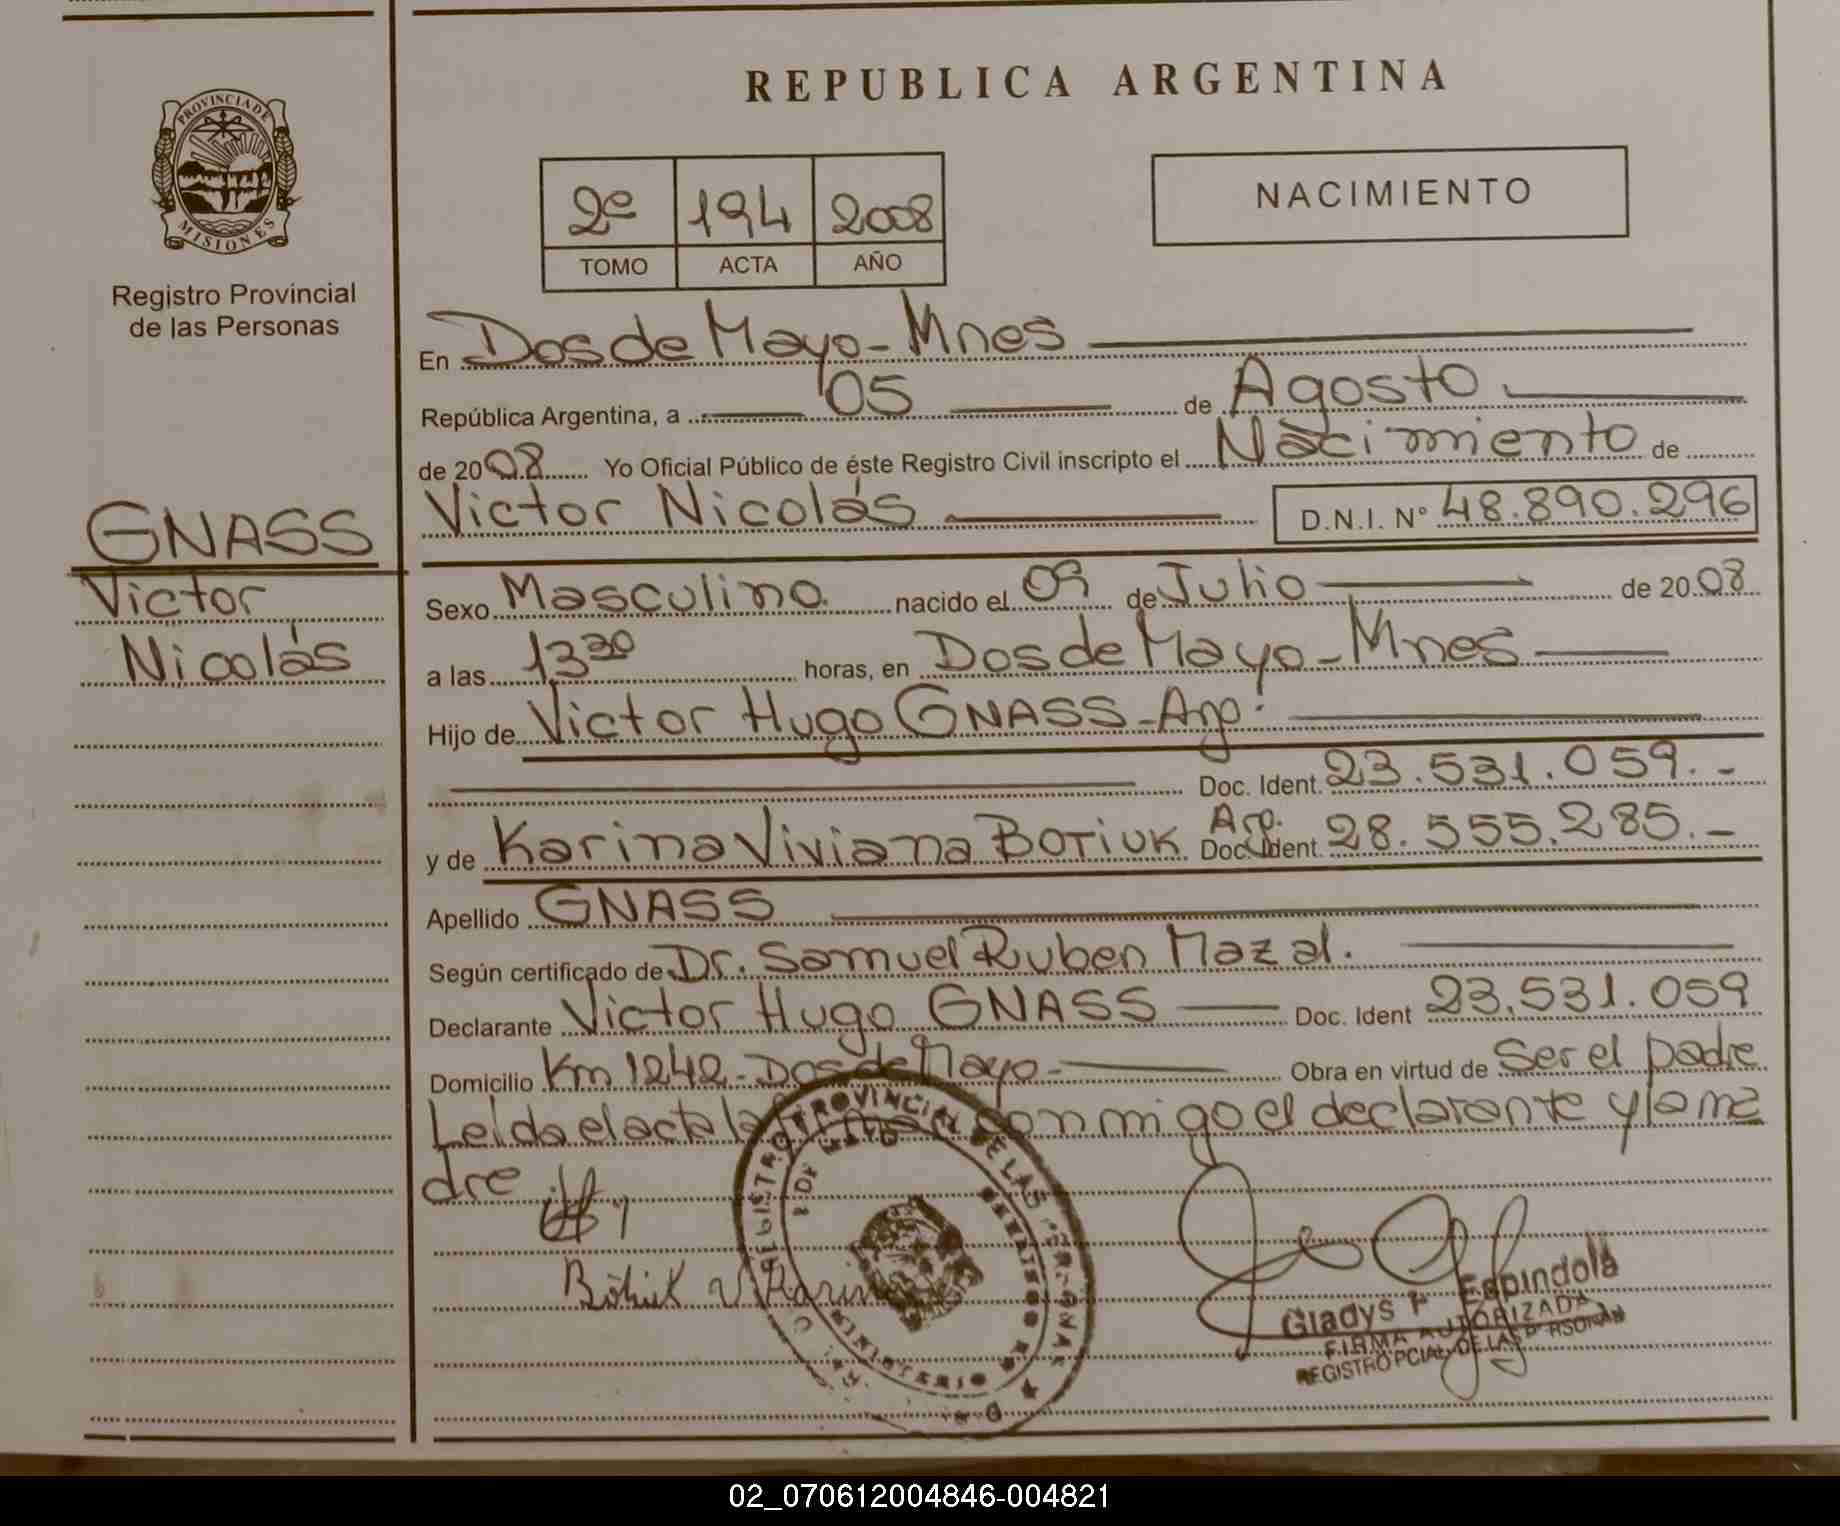 REPUBLICA ARGENTINA
PROVINCIA DE
MISIONES
Registro Provincial
de las Personas
2º 194 2008
TOMO ACTA AÑO
NACIMIENTO
En Dos de Mayo - Mnes
República Argentina, a 05 de Agosto
de 2008 Yo Oficial Público de éste Registro Civil inscripto el Nacimiento de
GNASS
Victor
Nicolás
Victor Nicolás D.N.I. N° 48.890.296
Sexo Masculino nacido el 09 de Julio de 2008
a las 13 30 horas, en Dos de Mayo - Mnes
Hijo de Victor Hugo GNASS - Arg.
Doc. Ident. 23.531.059.-
y de Karina Viviana BOTIUK Arg. Doc. Ident. 28.555.285.-
Apellido GNASS
Según certificado de Dr. Samuel Ruben Mazal.
Declarante Victor Hugo GNASS Doc. Ident 23.531.059
Domicilio Km 1242 - Dos de Mayo - Obra en virtud de Ser el padre
Leída el acta la firman conmigo el declarante y la ma
dre
REGISTRO PROVINCIAL DE LAS PERSONAS
MINISTERIO
Botiuk V. Karina
Gladys Espindola
FIRMA AUTORIZADA
REGISTRO PCIAL. DE LAS PERSONAS
02_070612004846-004821